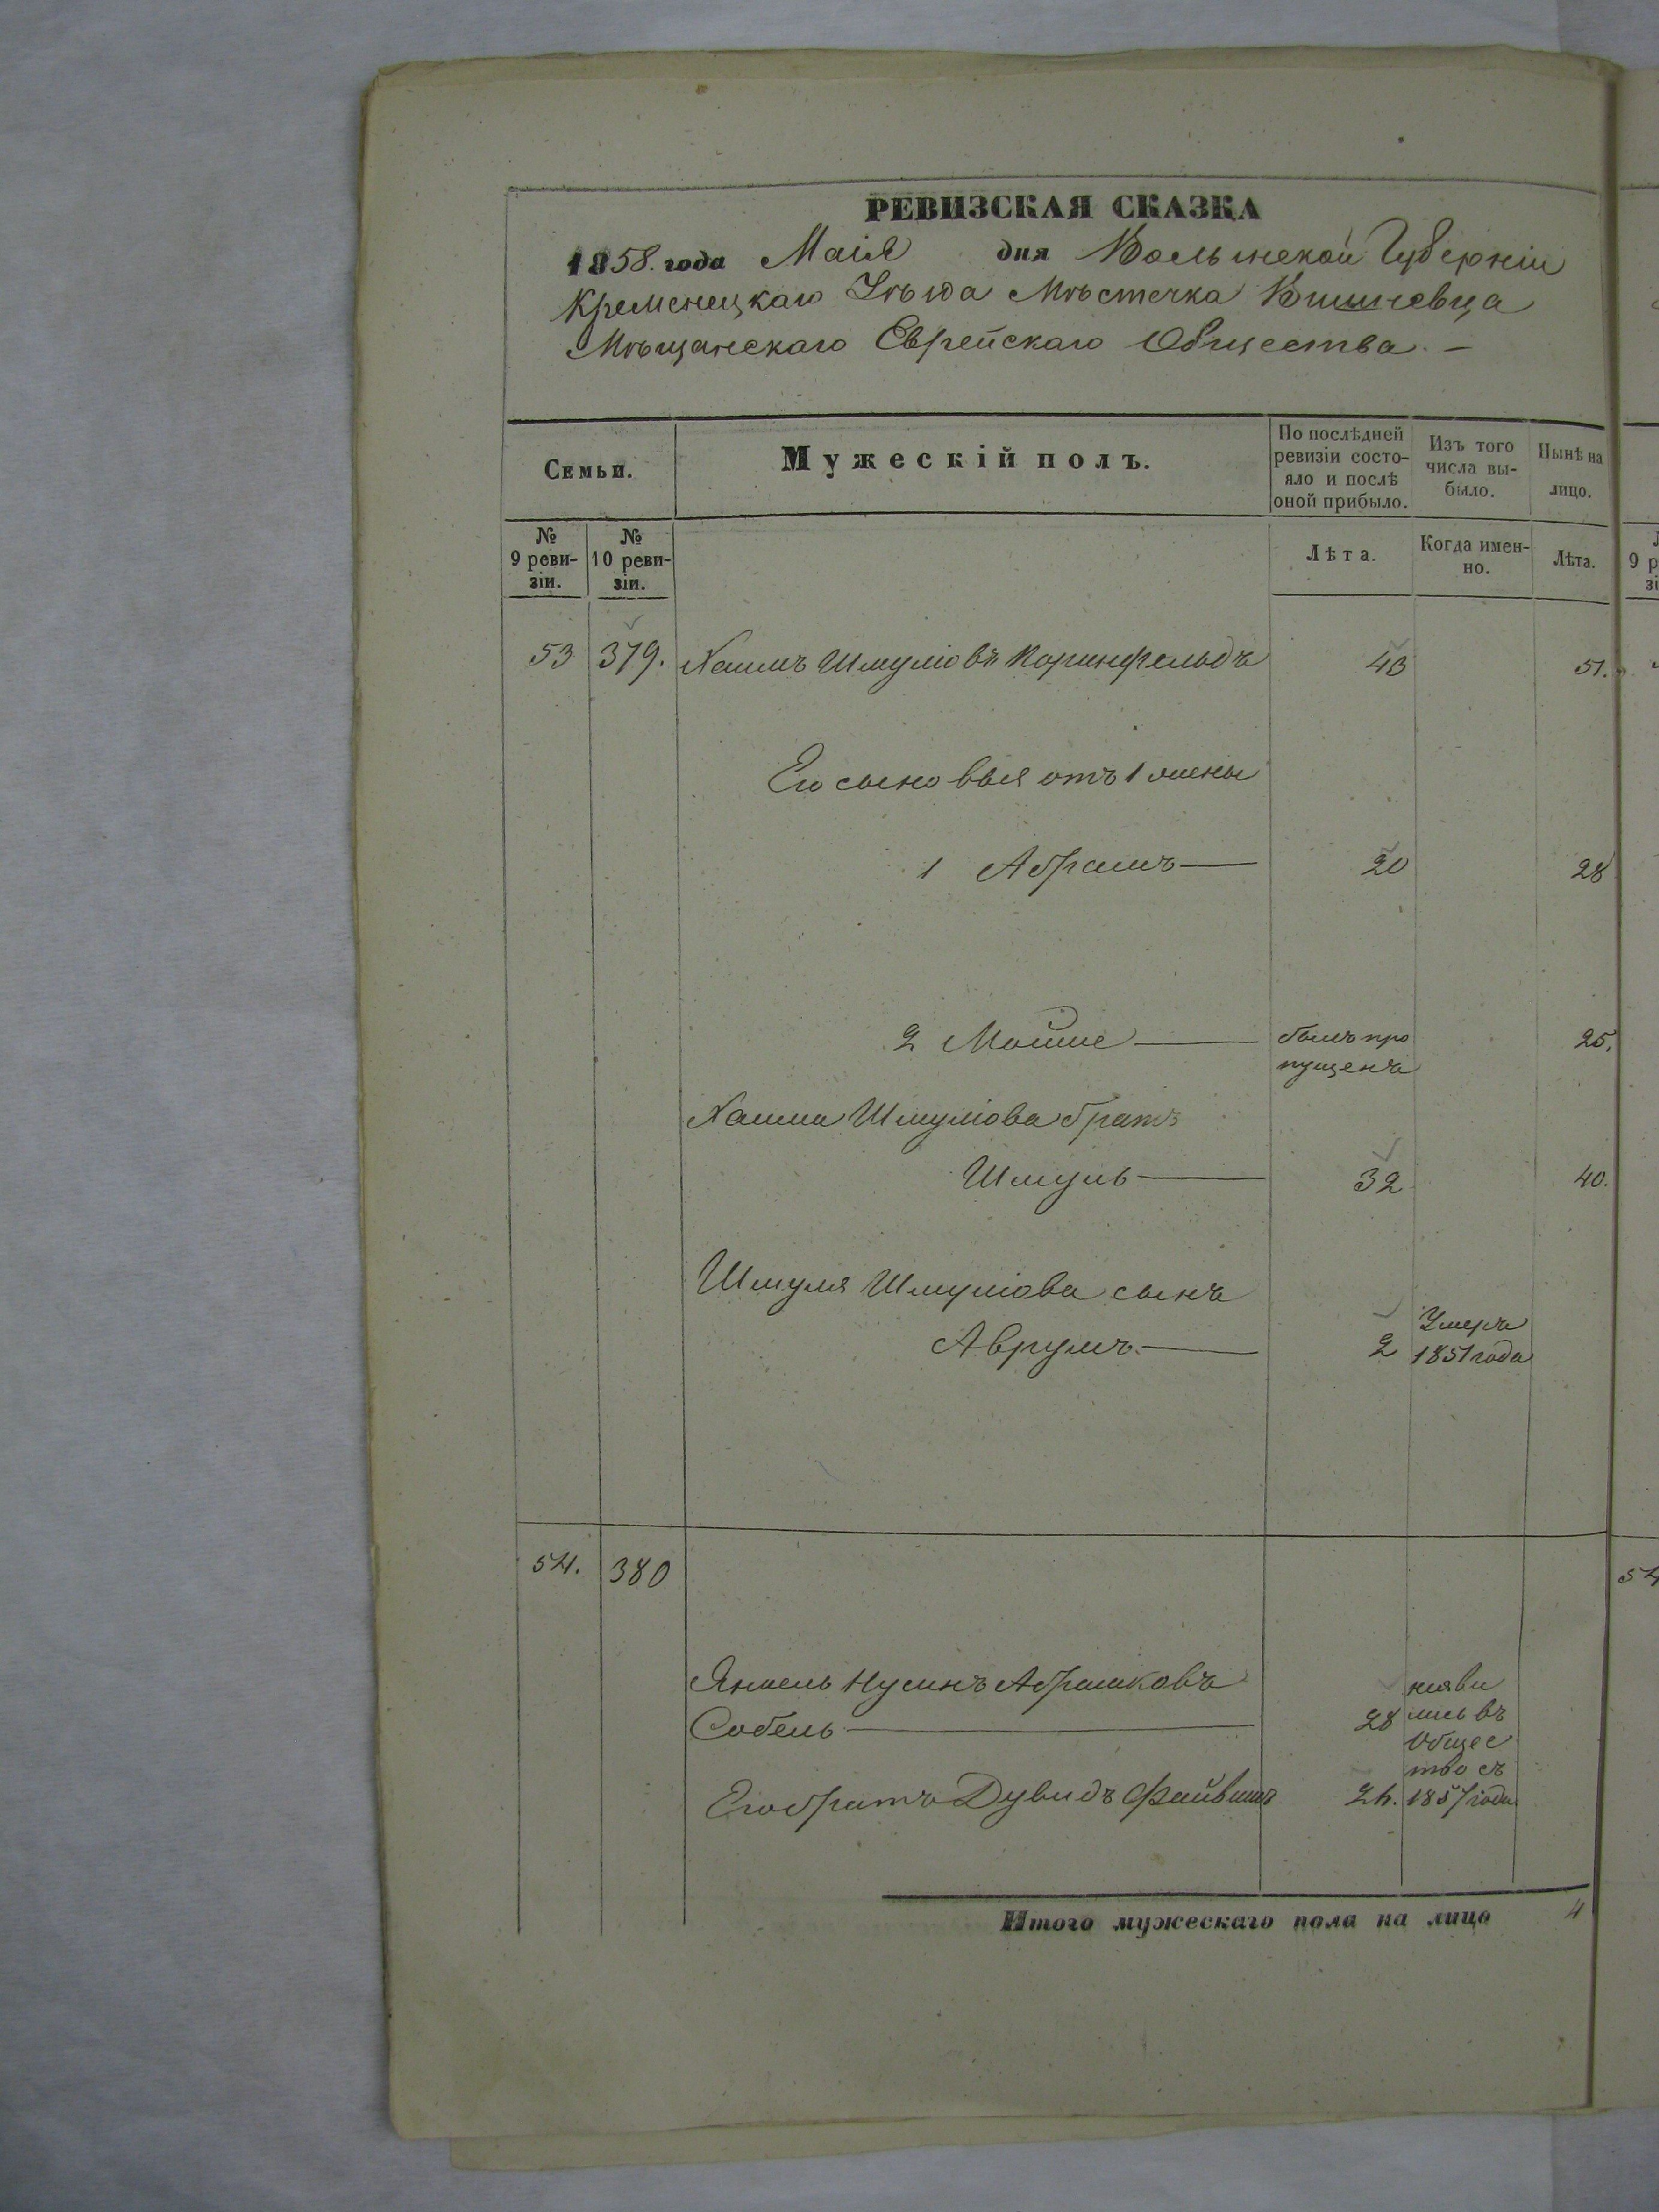 РЕВИЗСКАЯ СКАЗКА
1858. года Маія дня Волынской Губерніи
Кременецкаго Уѣзда Мѣстечка Вишневца
Мѣщанскаго Еврейскаго Общества. –
Семьи.
Мужескій полъ.
По послѣдней
ревизіи состо-
яло и послѣ
оной прибыло.
Изъ того
числа вы-
было.
Нынѣ на
лицо.
№
9 реви-
зіи.
№
10 реви-
зіи.
Лѣта.
Когда имен-
но.
Лѣта.
53 379. Хаимъ Шмуліовъ Коринфельдъ 43 51.
Его сыновья отъ 1 жены
1 Абрамъ 20 28
2 Мойше былъ про 25.
пущенъ
Хаима Шмуліова братъ
Шмуль 32 40.
Шмуля Шмуліова сынъ
Умеръ
Аврумъ 2 1851 года
54. 380
54
Янкель Нусинъ Абрамковъ
Собель 28 лись въ
Общес
тво съ
Его братъ Дувидъ Файвишъ 24. 1857 года
Итого мужескаго пола на лицо 4